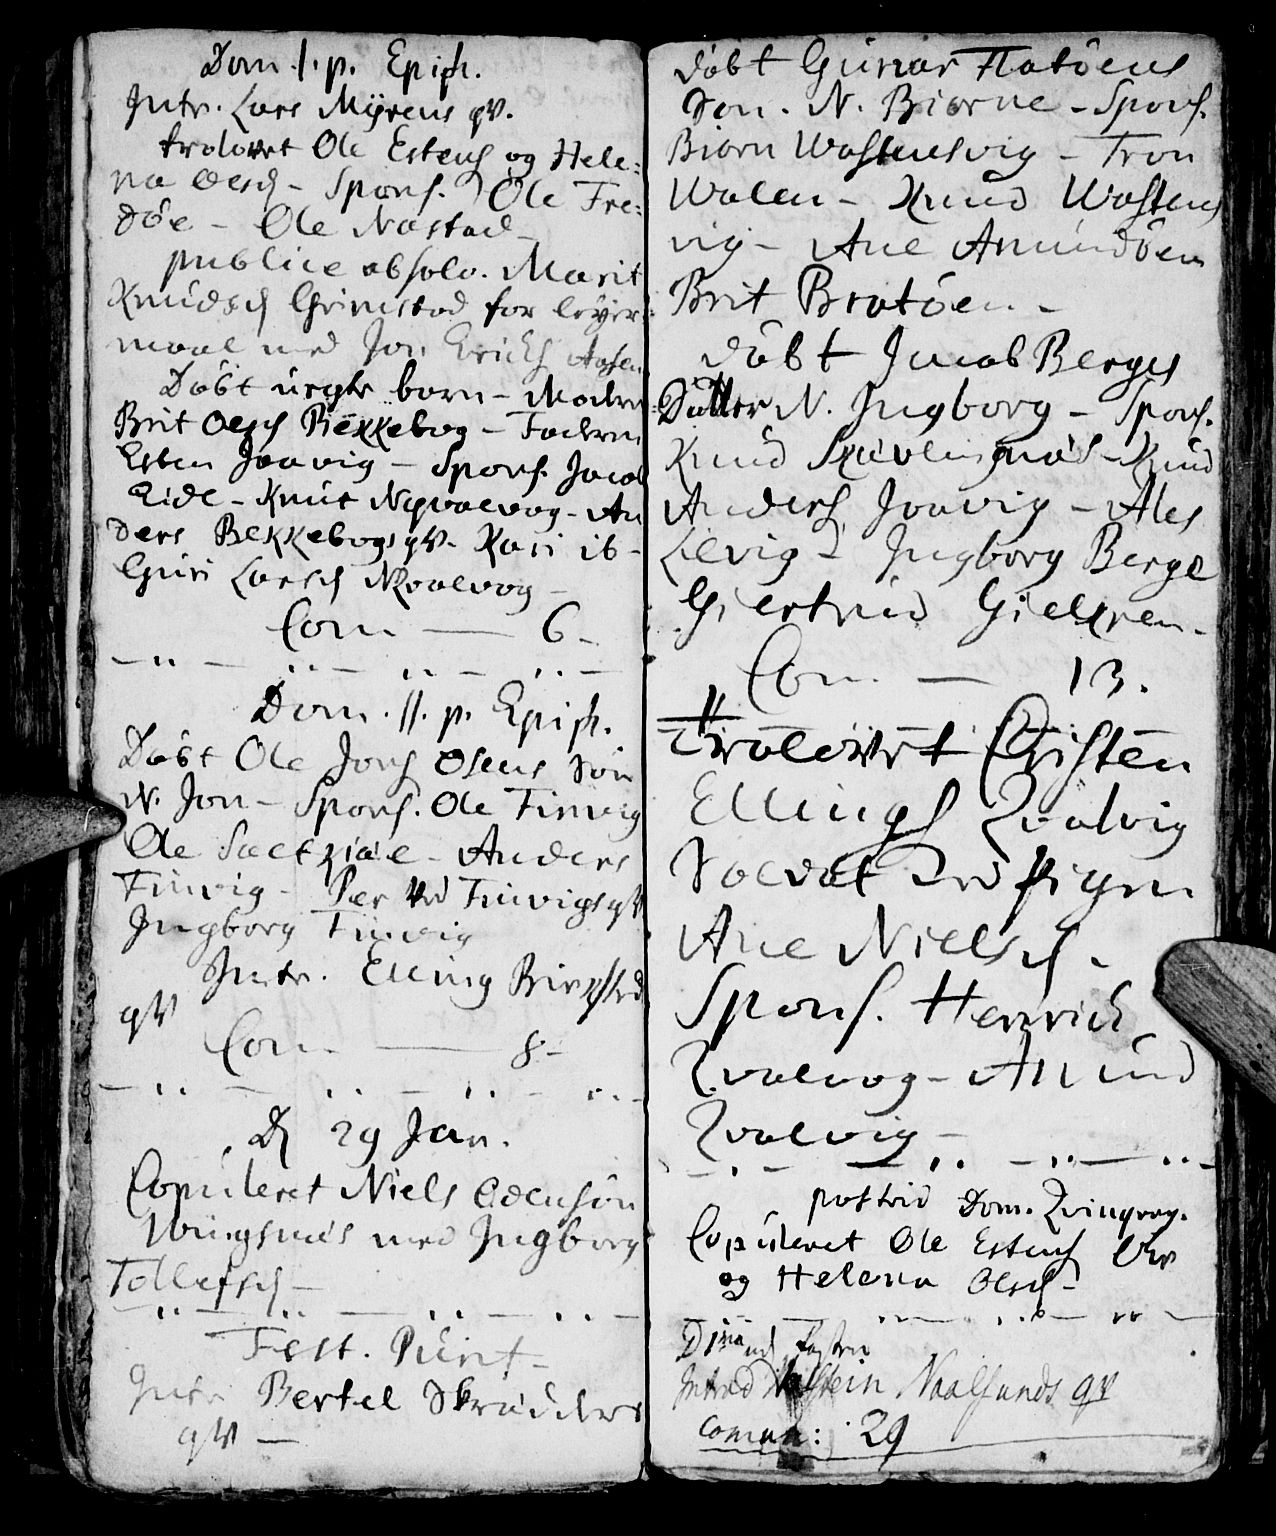 Dom. 1. p. Epiph.
Intr. Lars Myrens qv.
trolovet Ole Estens og Hele:
na Olesd - Spons. Ole Fre:
døe - Ole Nastad -
publice absolv. Marit
Knudsd Grimstad for leyer:
maal med Jon Erichs
Døbt uegte barn - Moderen
Brit Olesd Bekkebog - Faderen
Esten Joavig - Spons. Jacob
Eide - Knut Nqvalvog - An
ders Bekkebogs qv - Kari ib -
Guri Larsd Nqvalvog -
Com. — 6 -
Dom. 11. p. Epiph.
Døbt Ole Jons Osens Søn
N. Jon - Spons. Ole Tinvig
Ole - Anders
Tinvig - Per Tinvigs qv
Ingborg Tinvig
Intr. Elling
qv
Com. — 8 -
D 29 Jan.
Copuleret Niels Odensøn
Wingsnæs med Ingborg
Tollefsd -
Fest. Purif. -
Intr. Bertel Skrædders
qv —
døbt Gunar Flatøens
Søn. N. Biørne - Spons.
Biørn Wastensvig - Tron
Walen - Knud Wastens
vig - Ane Amundøen
Brit Bratøen -
døbt Jacob Berges
Datter N. Ingborg - Spons.
Knud - Knud
Anders Joavig - Ales
Lilvig - Ingborg Berge
Giertrud
Com. — 13.
Trolovet Christen
Ellings Qvalvig
Soldat med pigen
Ane Nielsd -
Spons. Henrich
Qvalvog - Amund
Qvalvig -
postrid Dom. Qvinqvag.
Copuleret Ole Estens
og Helena Olesd -
D 1 ma
Introd Naalsunds qv
Comun: 29